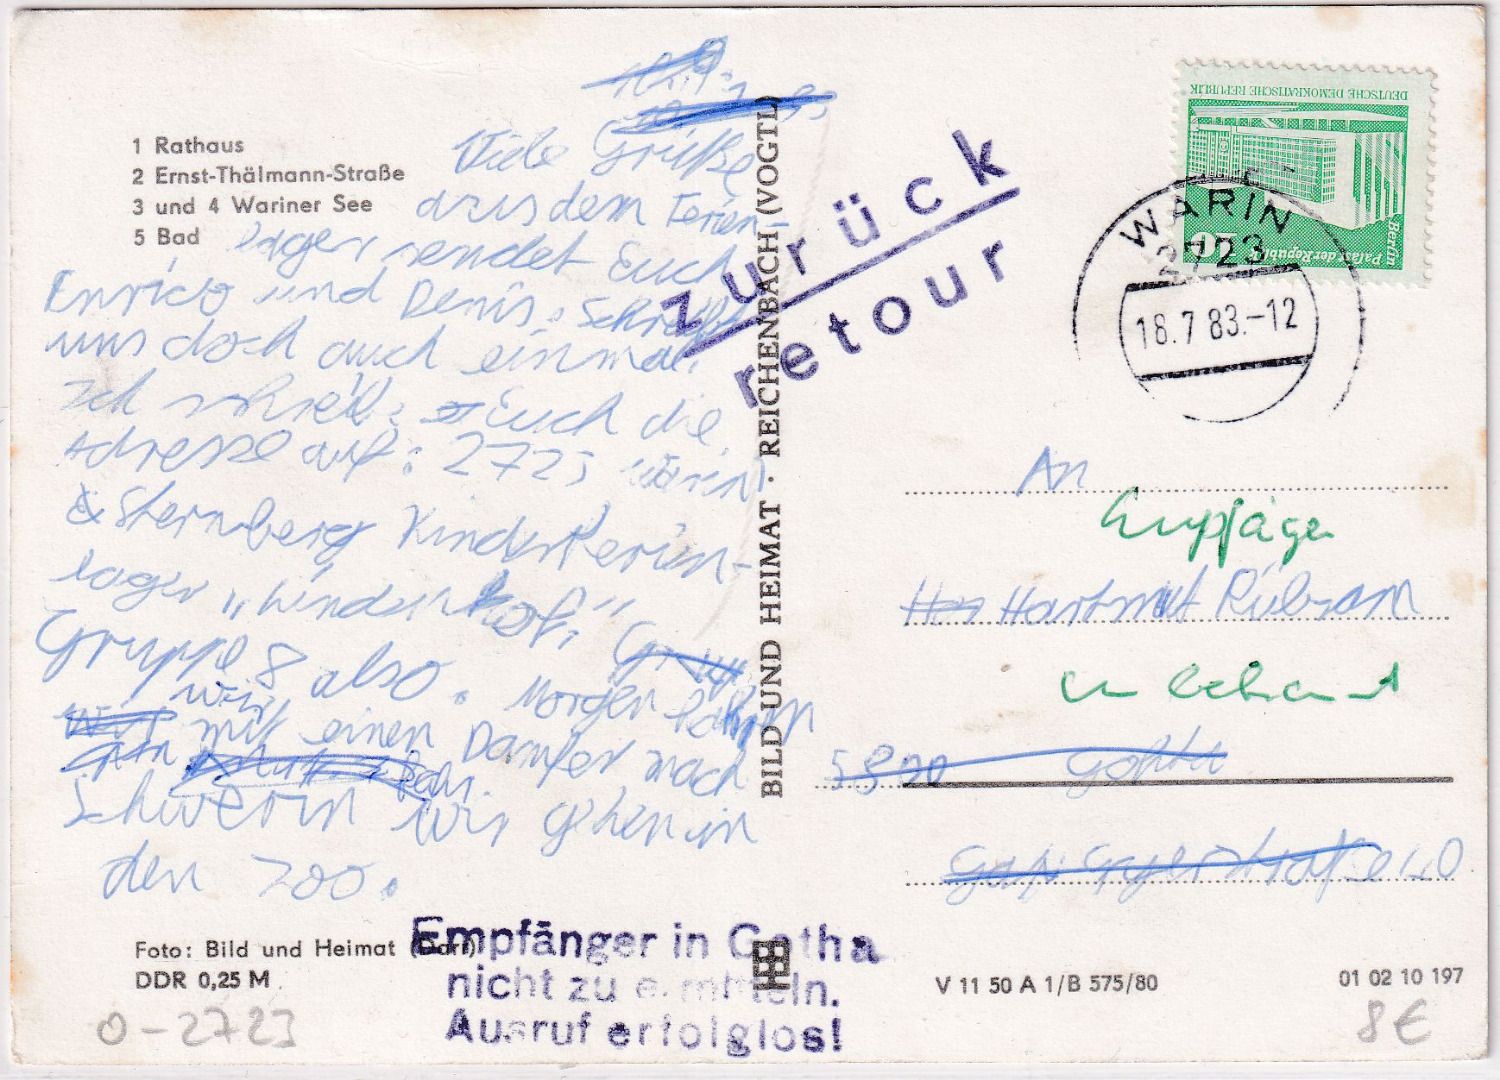 1 Rathaus
2 Ernst-Thälmann-Straße
3 und 4 Wariner See
5 Bad
Viele Grüße
aus dem Ferien-
lager sendet Euch
Enrico und Denis. Schreibt
uns doch auch einmal.
Ich schreib Euch die
Adresse auf: 2723 Warin
Sternberg Kinderferien-
lager „Lindenhof"
Gruppe 8 also. Morgen fahren
wir
mit einen Dampfer nach
Schwerin wir gehen in
den Zoo.
Foto: Bild und Heimat
DDR 0,25 M
O-2723
BILD UND HEIMAT · REICHENBACH (VOGTL)
zurück
retour
Empfänger in Gotha
nicht zu ermitteln.
Ausruf erfolglos!
DEUTSCHE DEMOKRATISCHE REPUBLIK
Berlin
Palast der Republik
10
WARIN
2723
18.7 83.-12
An
Empfäger
Hartmut Rübsam
unbekannt
5800 Gotha
V 11 50 A 1/B 575/80
01 02 10 197
8€